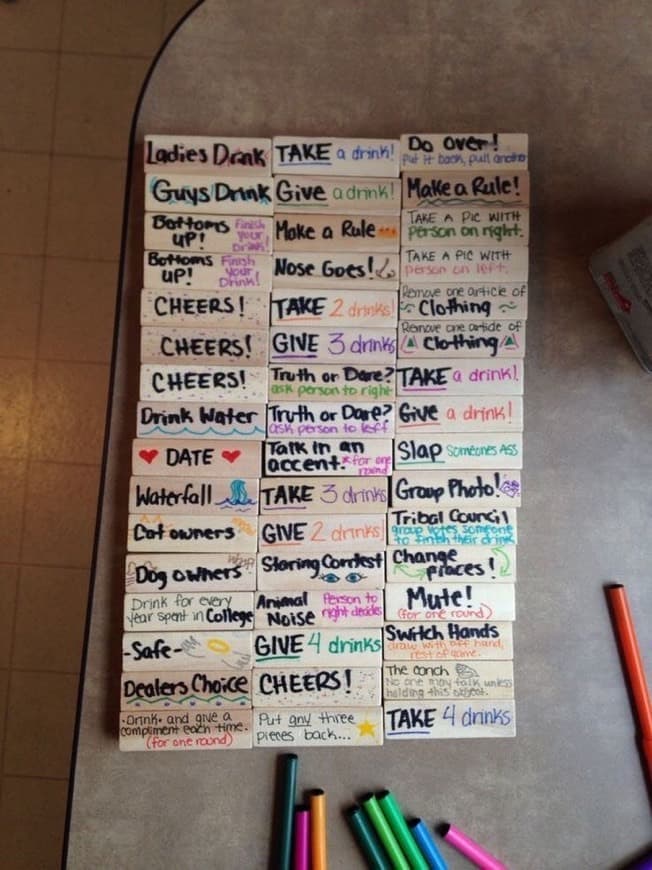 Ladies Drink
TAKE a drink!
Do Over!
Put it back, pull another
Guys Drink
Give a drink!
Make a Rule!
Bottoms UP!
Finish your Drink!
Make a Rule
TAKE A PIC WITH
person on right.
Bottoms UP!
Finish your Drink!
Nose Goes!
TAKE A PIC WITH
person on left.
CHEERS!
TAKE 2 drinks!
Remove one article of
Clothing
CHEERS!
GIVE 3 drinks
Remove one article of
Clothing
CHEERS!
Truth or Dare?
ask person to right
TAKE a drink!
Drink Water
Truth or Dare?
ask person to left
Give a drink!
DATE
Talk in an
accent. *for one round
Slap someones ASS
Waterfall
TAKE 3 drinks
Group Photo!
Cat owners
GIVE 2 drinks!
Tribal Council
group votes someone
to finish their drink
Dog owners
Staring Contest
Change
places!
Drink for every
year spent in College
Animal
Noise
Person to
right decides
Mute!
(for one round)
-Safe-
GIVE 4 drinks
Switch Hands
draw with off hand,
rest of game.
Dealers Choice
CHEERS!
The conch
No one may talk unless
holding this object.
·Drink· and give a
compliment each time.
(for one round)
Put any three
pieces back...
TAKE 4 drinks